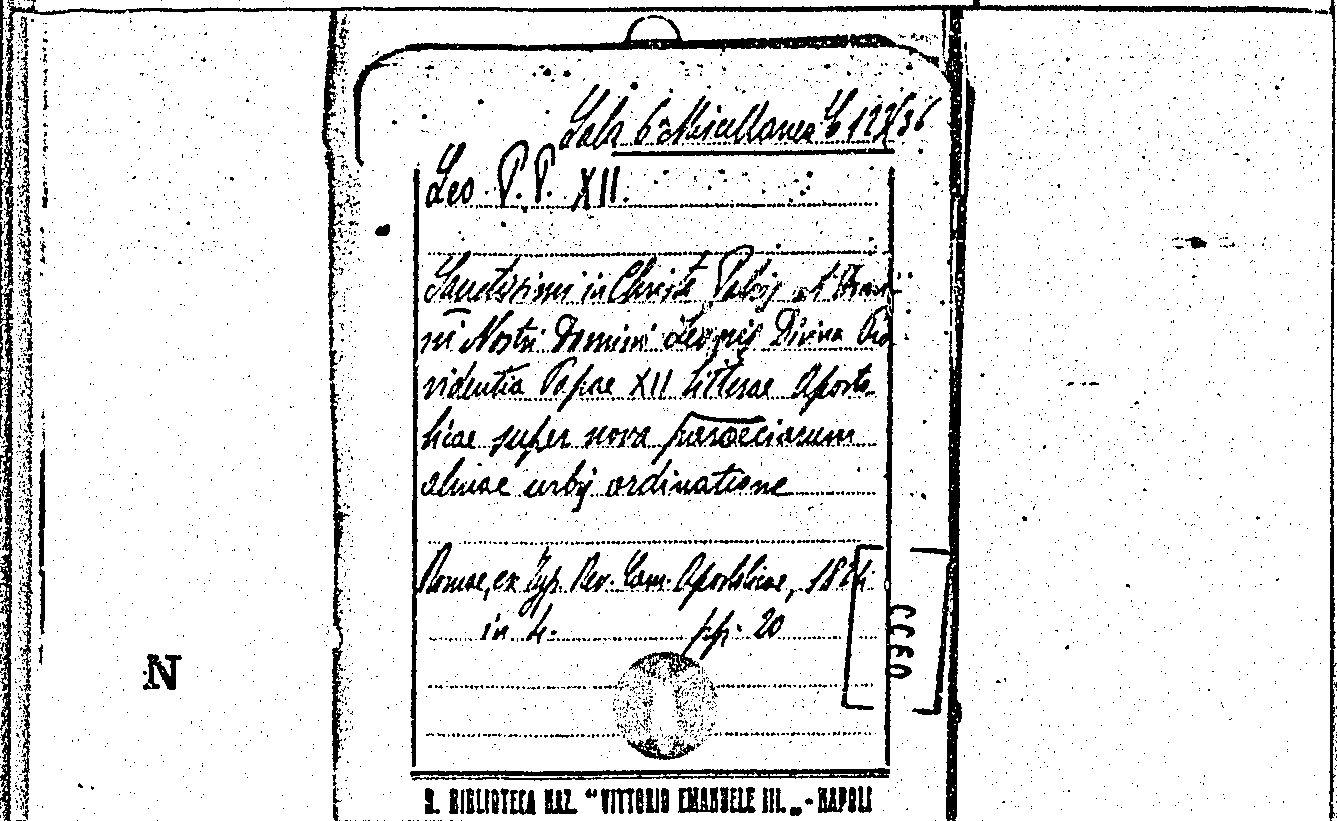 Sala 6ª Miscellanea
Leo P.P. XII.
Sanctissimi in Christo Patris et Domi-
ni Nostri Domini Leonis Divina Pro
videntia Papae XII litterae Aposto-
licae super nova paroeciarum
almae urbis ordinatione
Romae, ex Typ. Rev. Cam. Apostolicae, 1824
in 4. pp. 20
N
R. BIBLIOTECA NAZ. "VITTORIO EMANUELE III." - NAPOLI